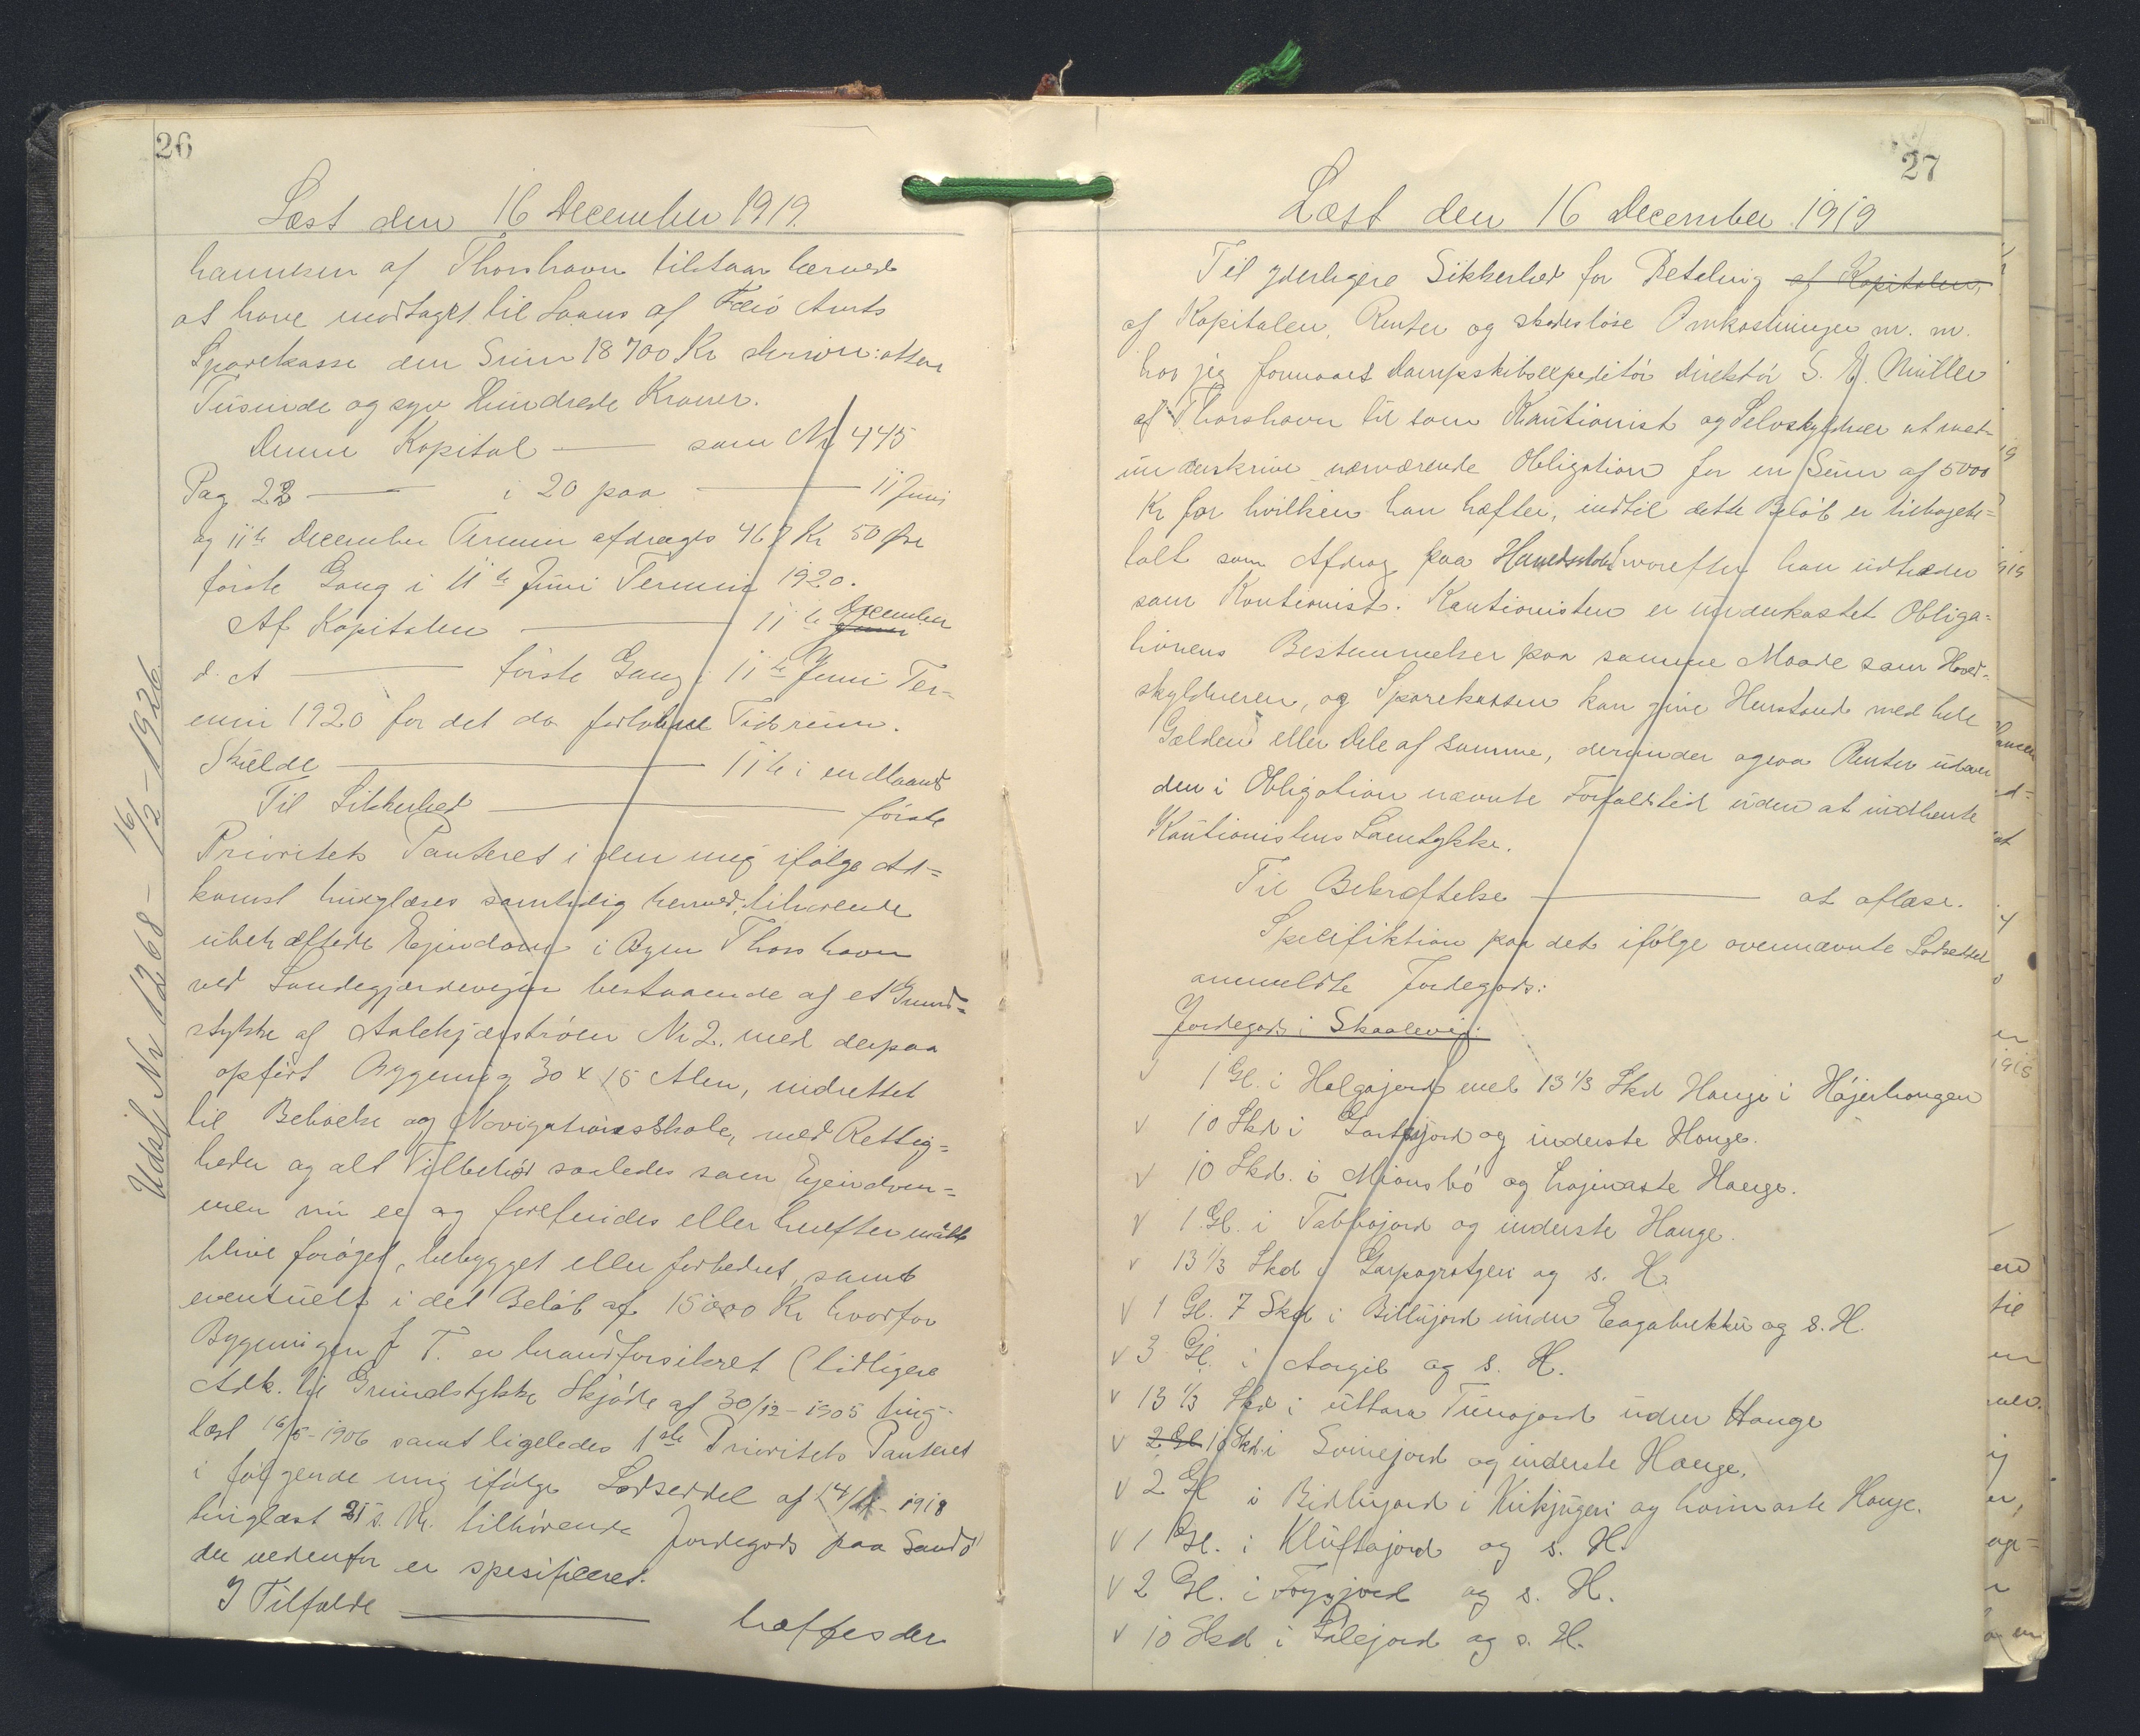 26
Læst den 16 December 1919.
hannsen af Thorshavn tilstaar herved
at have modtaget til Laans af Færö Amts
Sparekasse den Sum 18700 Kr skriver: atten
Tusinde og syv Hundrede Kroner.
Denne Kapital — som Nr 445
Pag 22 — i 20 paa — 11 Juni
og 11te December Termin afdrages 467 Kr 50 Øre
förste Gang i 11te Juni Termin 1920.
Af Kapitalen — 11te Juni December
d. A — förste Gang i 11te Juni Ter-
min 1920 for det da forlöbne Tidsrum.
Skulde — 11te i en Maaned
Til Sikkerhed — förste
Prioritets Panteret i den mig ifølge Ad=
komst tinglæses samtidig hermed, tilhørende
ubehæftede Ejendom i Byen Thorshavn
ved Landegjærdevejen bestaaende af et Grund=
stykke af Aalekjærströen Nr 2. med derpaa
opført Bygning 30 x 15 Alen, indrettet
til Beboelse og Navigationsskole, med Rettig=
heder og alt Tilbehör saaledes som Ejendom=
men nu er og forefindes eller herefter måtte
blive forøget, bebygget eller forbedret, samt
eventuelt i det Beløb af 15000 Kr hvorfor
Bygningen f. T. er brandforsikret (tidligere
Adk. til Grundstykke Skjöde af 30/12-1905 ting-
læst 16/5-1906 samt ligeledes 1ste Prioritets Panteret
i følgende mig ifølge Lodseddel af 14/11-1918
tinglæst s. M. tilhørende Jordegods paa Sandö
der nedenfor er spesificeret.
I Tilfælde — hæftes der
Udsl. Nr 1268 - 16/12-1926
27
Læst den 16 December 1919
Til yderligere Sikkerhed for Betaling af Kapitalen,
af Kapitalen, Renter og skadeslöse Omkostninger m. m.
har jeg formaaet Dampskibsexpeditör Direktör S. E. Müller
af Thorshavn til som Kautionist og Selvskyldner at med-
underskrive nærværende Obligation for en Sum af 5000
Kr for hvilken han hæfter, indtil dette Beløb er tilbagebe=
talt som Afdrag paa Hovedstolen hvorefter han udtræder
som Kautionist. Kautionisten er underkastet Obliga=
tionens Bestemmelser paa samme Maade som Hoved=
skyldneren, og Sparekassen kan give Henstand med hele
Gælden eller Dele af samme, derunder ogsaa Renter udover
den i Obligation nævnte Forfaldstid uden at indhente
Kautionistens Samtykke.
Til Bekræftelse — at aflæse.
Specifiktion paa det ifølge ovennævnte Lodseddel
anmeldte Jordegods:
Jordegods i Skaalevig:
V 1 Gl. i Helgajord med 13 1/3 Skd Hauge i Højerhaugen
V 10 Skd i og inderste Hauge.
V 10 Skd. i Mionsbö og hajmaste Hauge.
V 1 Gl. i Tabbajord og inderste Hauge.
V 13 1/3 Skd i Garpagratgeri og s. H.
V 1 Gl. 7 Skd i Billujord under Eagabrekku og s. H.
V 3 Gl. i Aargil og s. H.
V 13 1/3 Skd i uttara Tunojord uden Hauge
V 2 Gl. 10 Skd. i Svinejord og inderste Hauge.
V 2 Gl i Bidlujord i Kirkjugeri og haimaste Hauge.
V 1 Gl. i Kluftajord og s. H.
V 2 Gl. i og s. H.
V 10 Skd i og s. H.